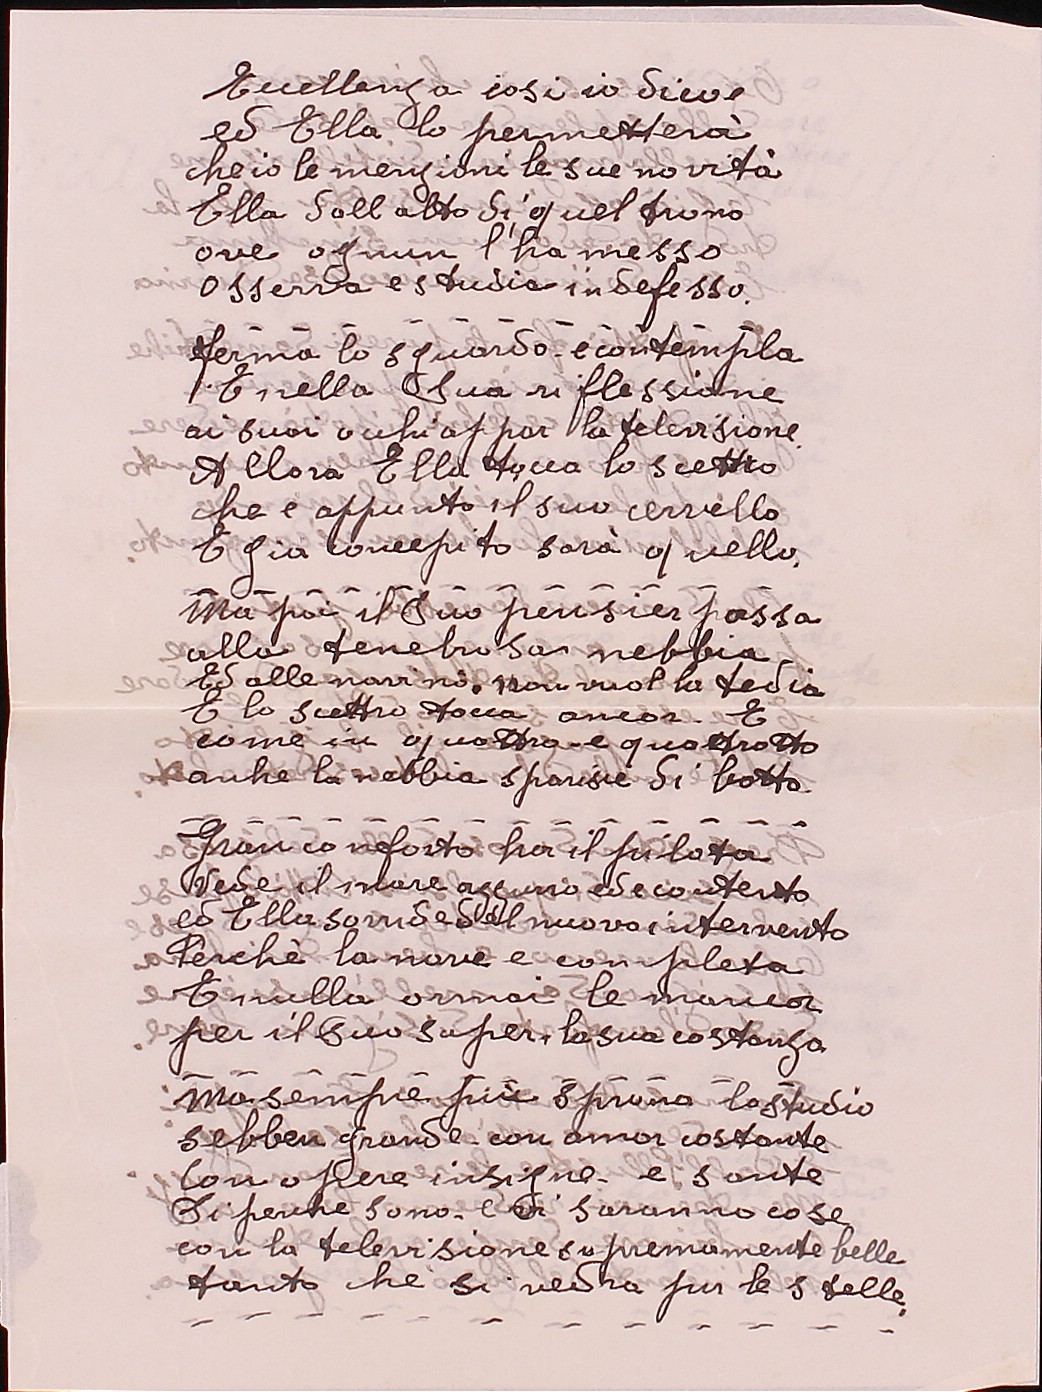 Eccellenza così io dicve
ed Ella lo permetterà
che io le menzioni le sue novità
Ella dall alto di quel trono
ove ognun l'ha messo
Osserva e studia indefesso.
ferma lo sguardo e contempla
E nella Sua riflessione
ai suoi occhi appar la televisione.
Allora Ella tocca lo scettro
che è appunto il suo cervello
E gia concepito sarà quello.
Ma poi il Suo pensier passa
alla tenebrosa nebbia
Ed alle navi no. non vuol la tedia
E lo scettro tocca ancor. E
come in quattro e quattrotto
anche la nebbia sparisce di botto.
Gran conforto ha il pilota
Vede il mare azzurro ed e contento
ed Ella sorride del nuovo intervento
Perchè la nave e completa
E nulla ormai le manca
per il Suo saper, la sua costanza
Ma sempre più sprona lo studio
sebben grande con amor costante
Con opere insigne e sante
Si perche sono e vi saranno cose
con la televisione supremamente belle
tanto che si vedra pur le stelle.